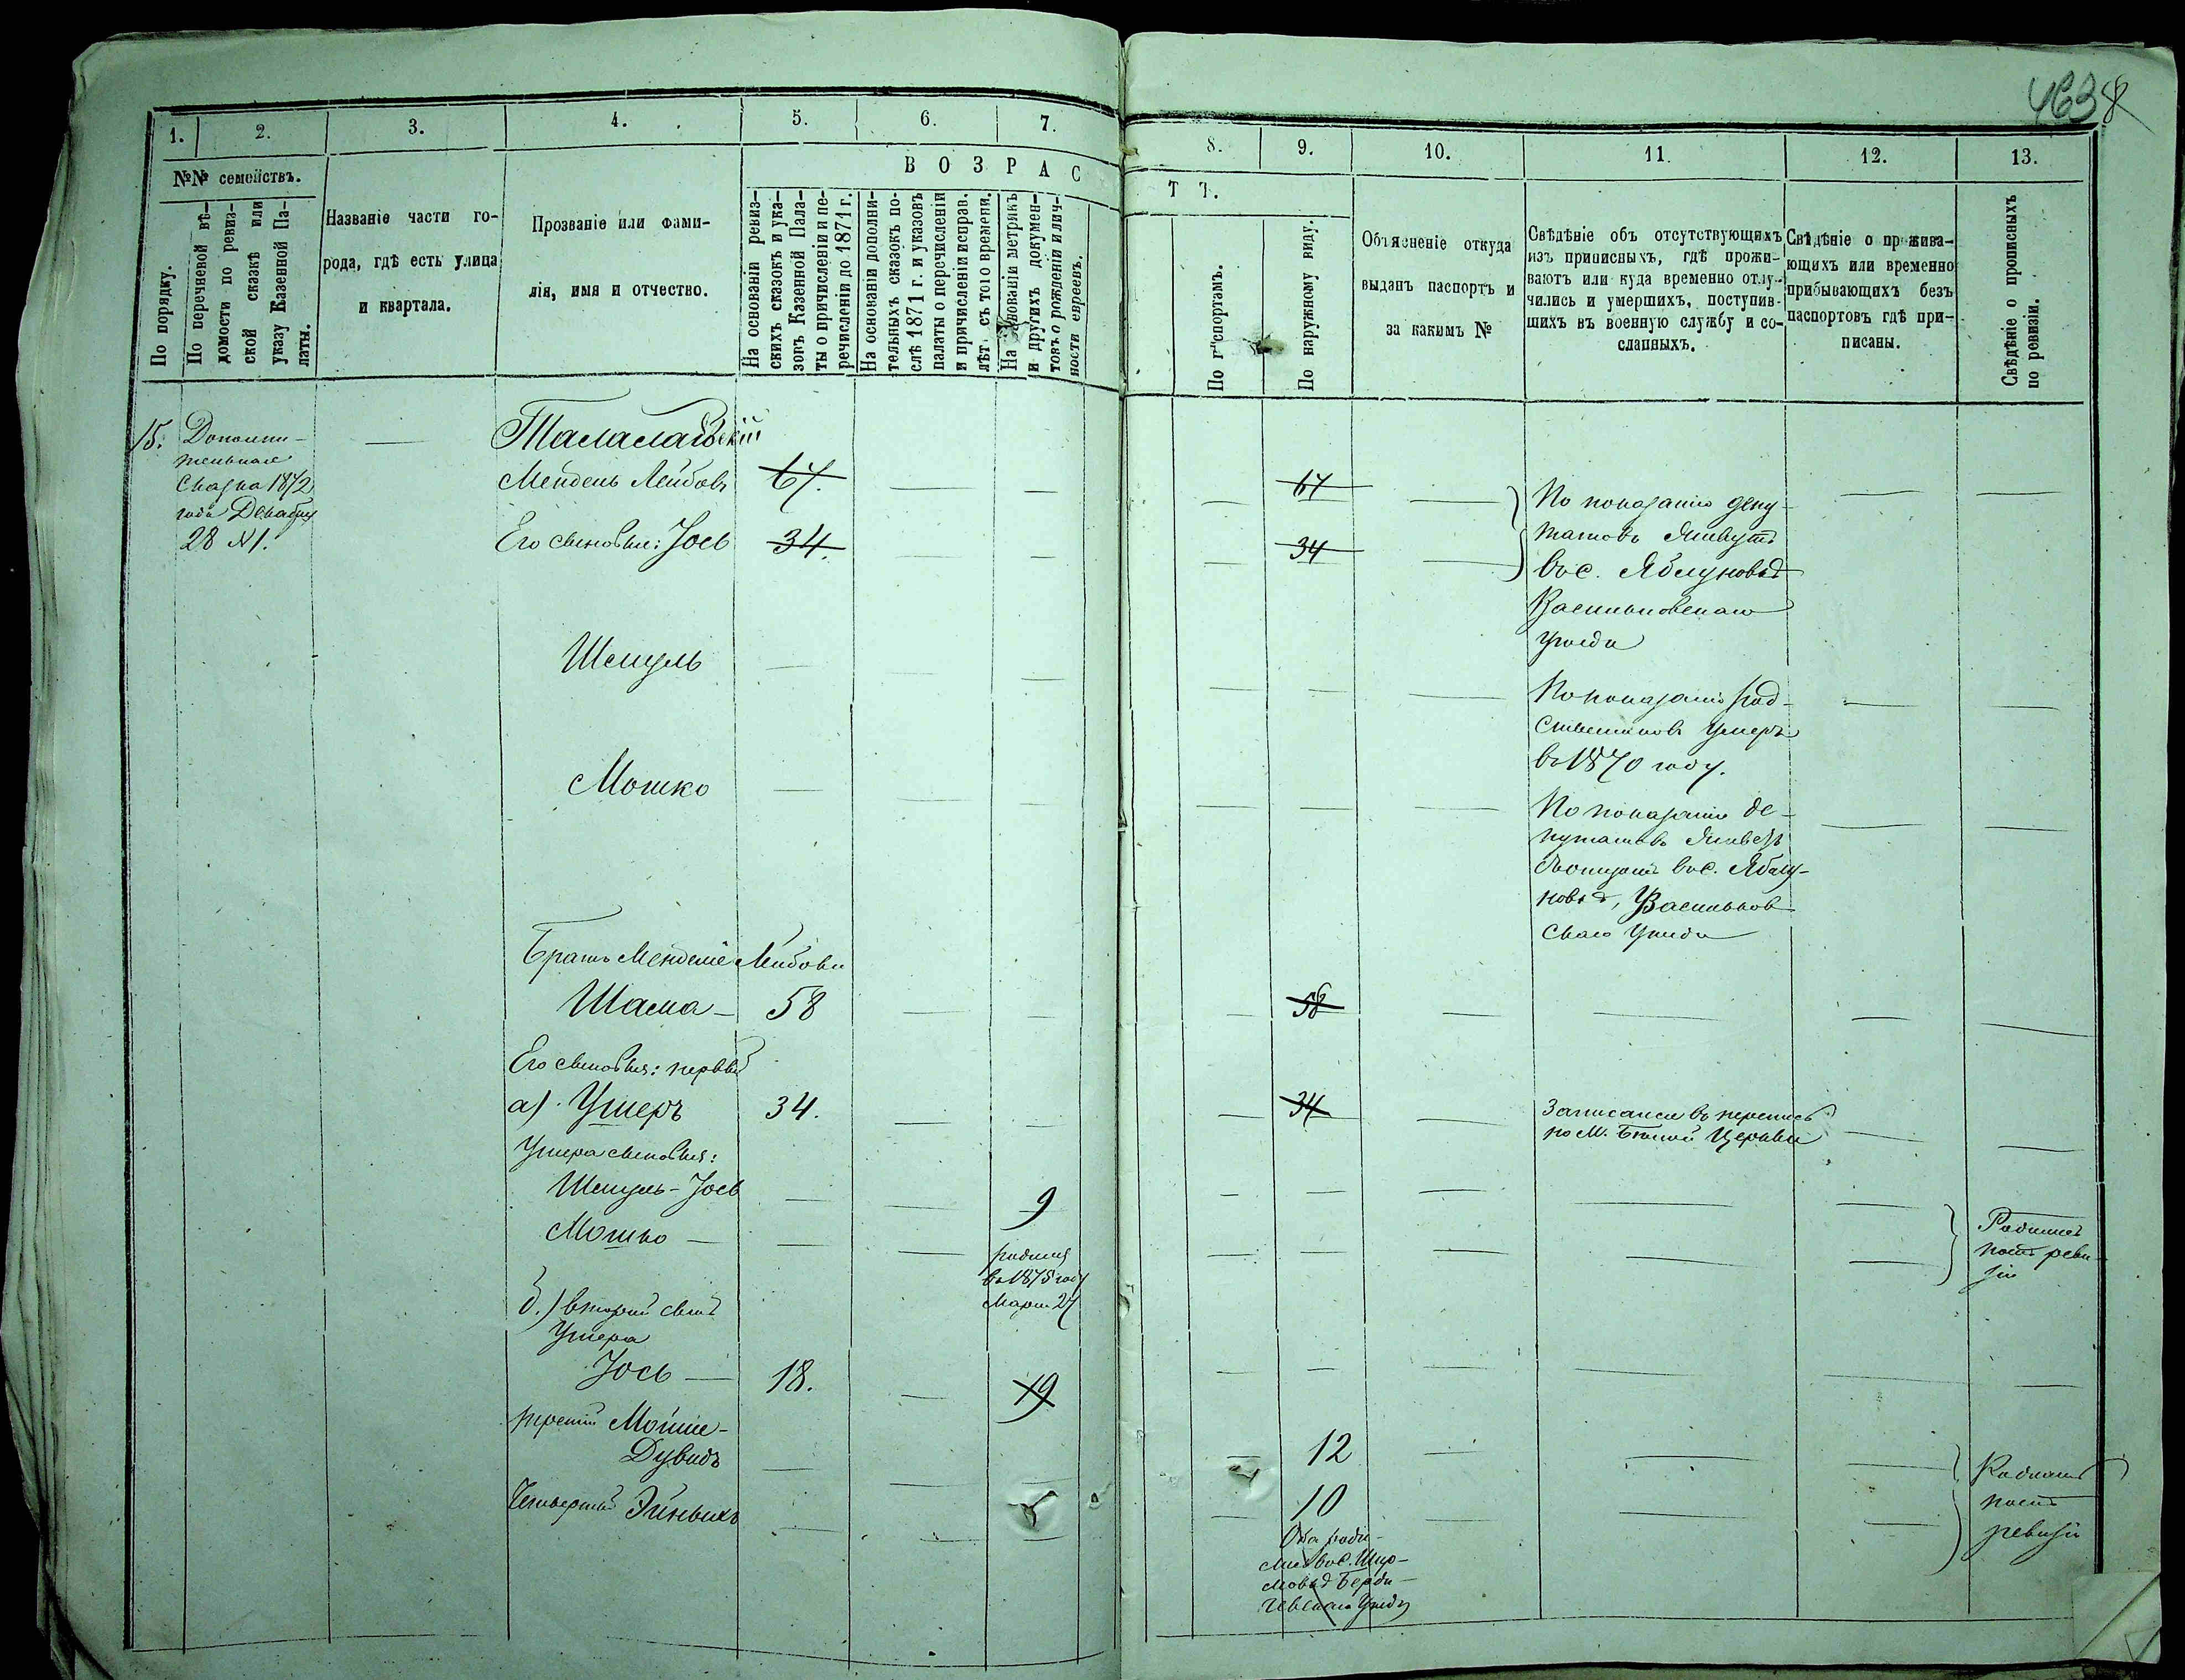 463 8
1. 2. 3. 4. 5. 6. 7.
8. 9. 10. 11. 12. 13.
№№ семействъ.
По порядку.
По перечневой вѣ-
домости по ревиз-
ской сказкѣ или
указу Казенной Па-
латы.
Названіе части го-
рода, гдѣ есть улица
и квартала.
Прозваніе или фами-
лія, имя и отчество.
В О З Р А С
Т Ъ.
На основаніи ревиз-
скихъ сказокъ и ука-
зовъ Казенной Пала-
ты о причисленіи и пе-
речисленіи до 1871 г.
На основаніи дополни-
тельныхъ сказокъ по-
слѣ 1871 г. и указовъ
палаты о перечисленіи
и причисленіи исправ.
лѣт. съ того времени.
На основаніи метрикъ
и другихъ докумен-
товъ о рожденіи и лич-
ности евреевъ.
По паспортамъ.
По наружному виду.
Объясненіе откуда
выданъ паспортъ и
за какимъ №
Свѣдѣніе объ отсутствующихъ
изъ приписныхъ, гдѣ прожи-
ваютъ или куда временно отлу-
чились и умершихъ, поступив-
шихъ въ военную службу и со-
сланныхъ.
Свѣдѣніе о прожива-
ющихъ или временно
прибывающихъ безъ
паспортовъ гдѣ при-
писаны.
Свѣдѣніе о прописныхъ
по ревизіи.
15. Дополни-
тельная
Сказка 1872
года Декабря
28 №1.
Талалаевскій
Мендель Лейбовъ 67. 67
Его сыновья: Іось 34. 34
По показанію депу-
татовъ живутъ
въ с. Яблуновкѣ
Васильковскаго
уѣзда
Шмуль
По показанію род-
ственниковъ умеръ
въ 1870 году.
Мошко
По показанію де-
путатовъ живетъ
въ с. Яблу-
новкѣ, Васильков-
скаго уѣзда
Братъ Менделя Лейбова
Шама — 58 58
Его сыновья: первый
а) Ушеръ 34. 34
Записанъ въ перепись
по м. Бѣлой Церкви
Ушера сыновья:
Шмуль-Іось 9
Мошко —
родился
въ 1875 году
Марта 27
Родились
послѣ реви-
зіи
б.) второй сынъ
Ушера
Іось — 18. 19
третій Мойше-
Дувидъ 12
Четвертый Эйнвихъ 10
Оба роди-
лись въ с.
Берди-
чевскаго уѣзда
Родились
послѣ
ревизіи